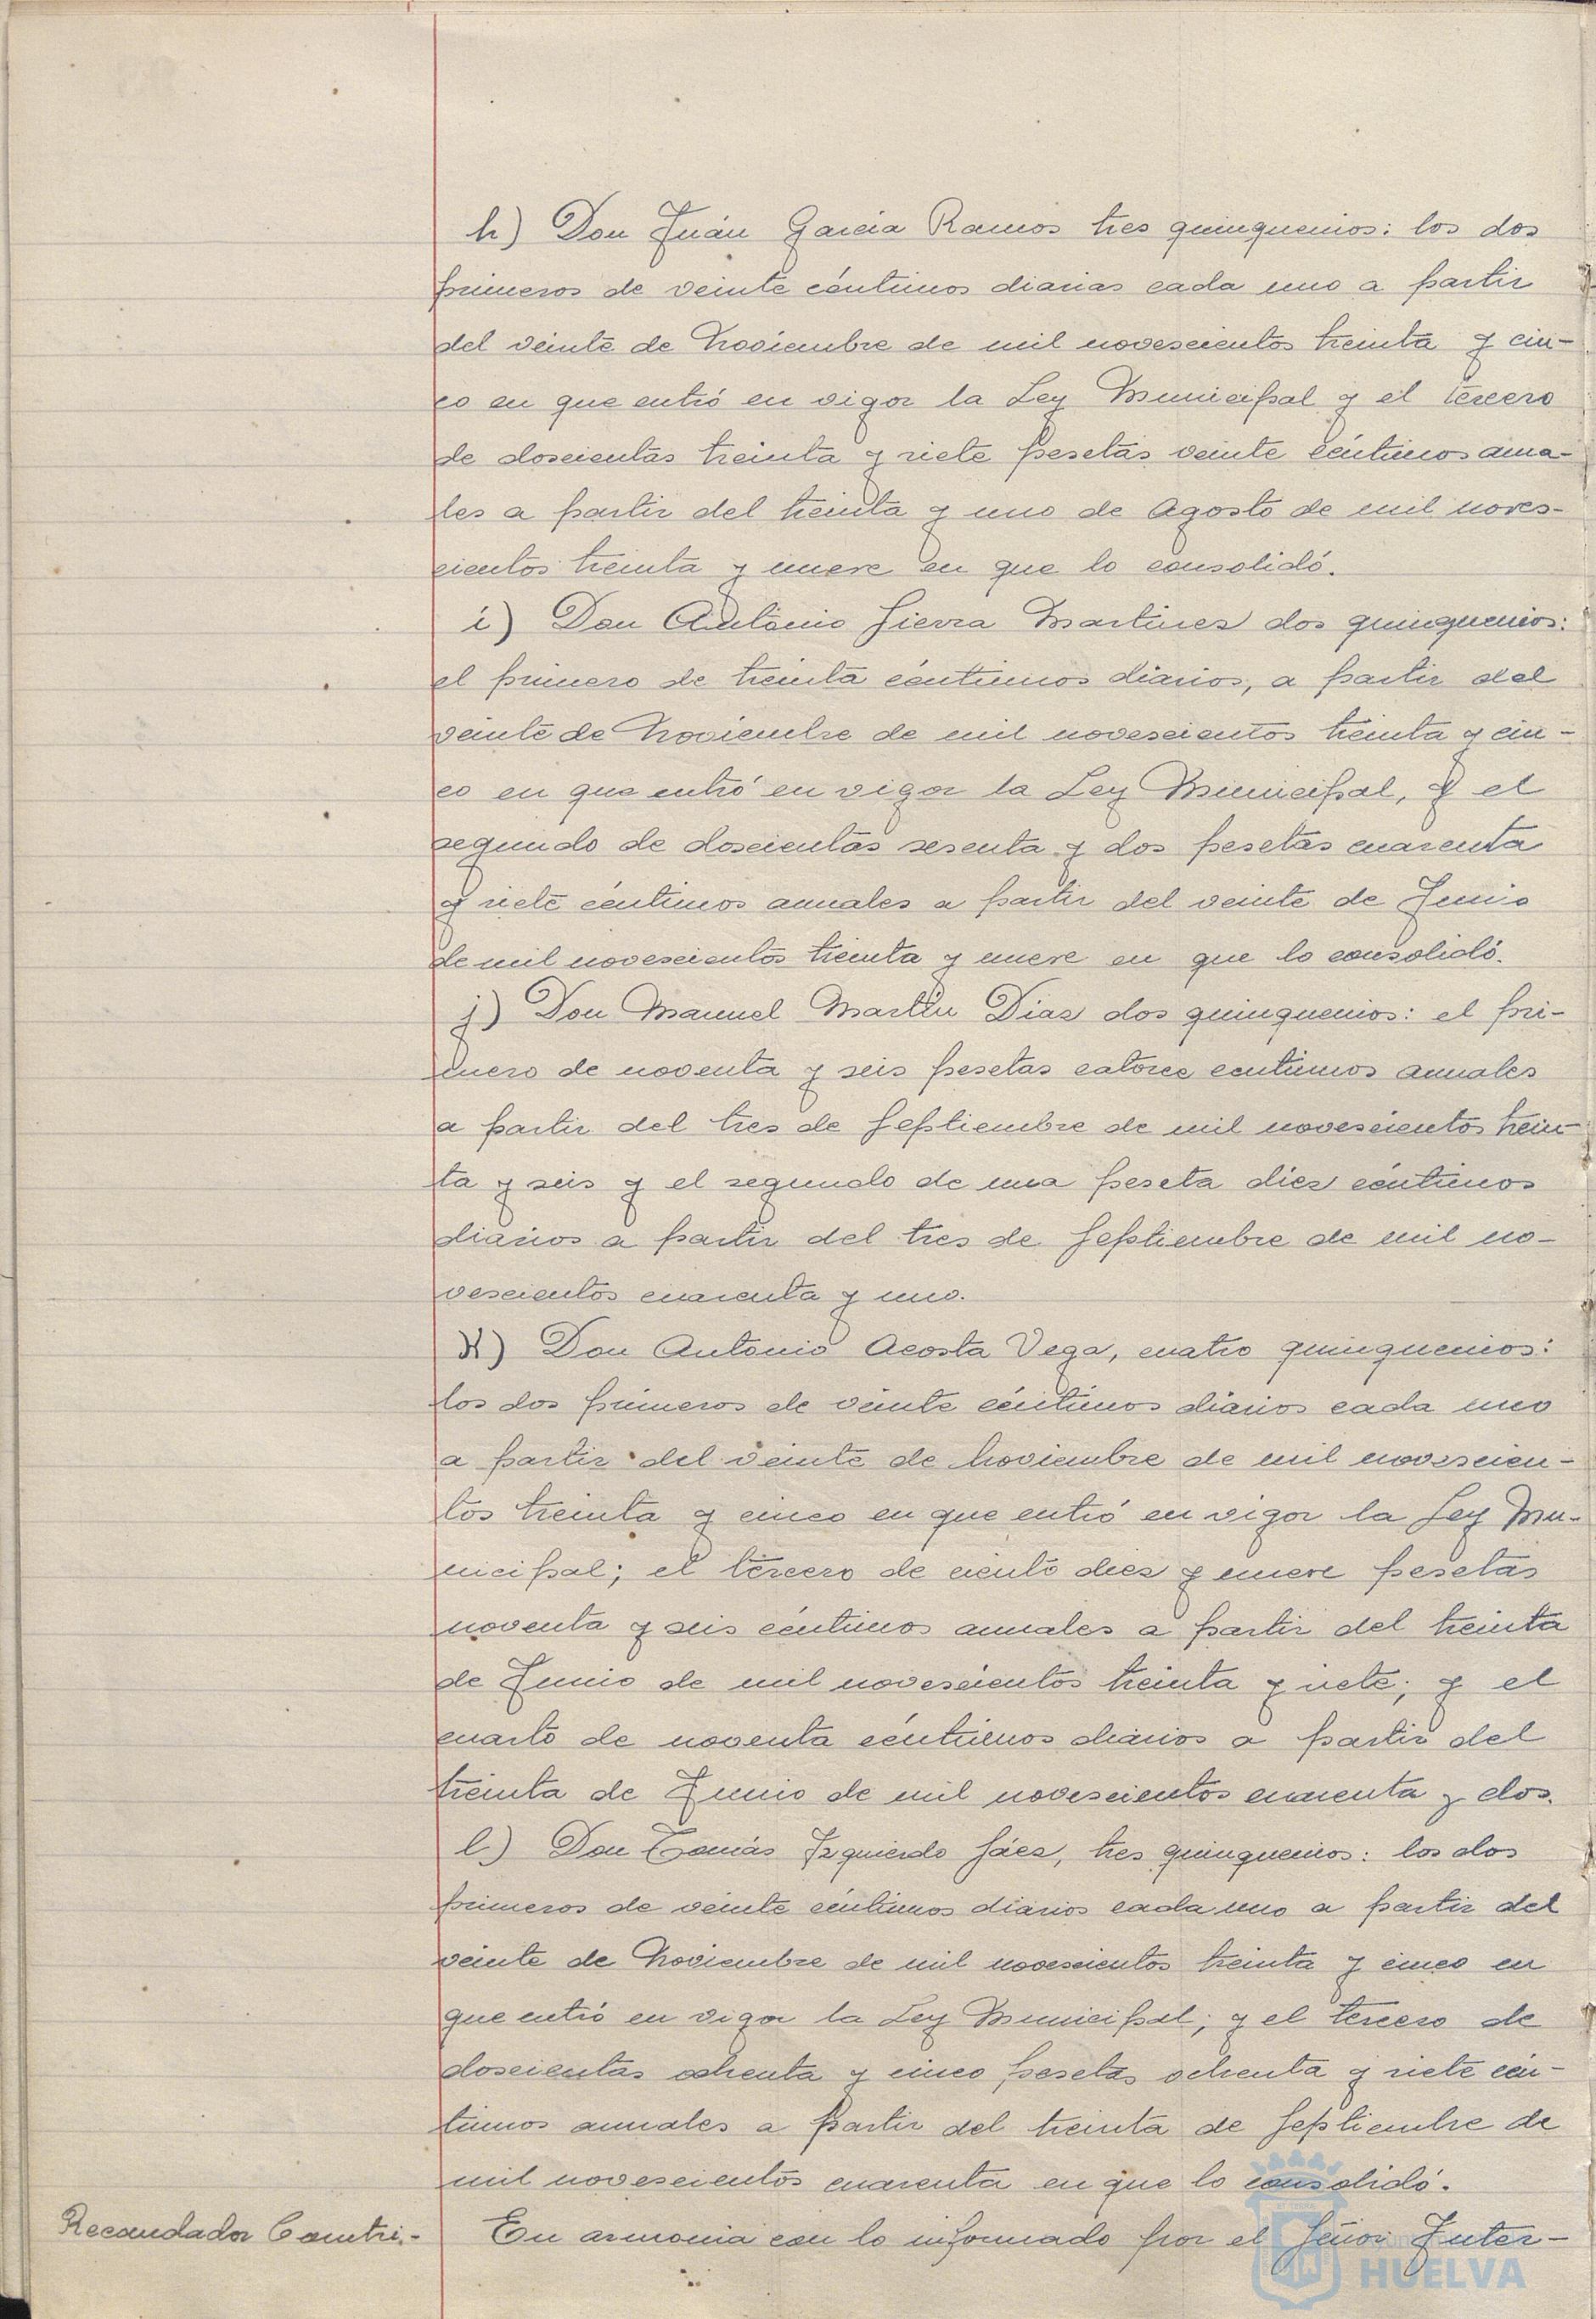 h) Don Juán García Ramos tres quinquenios: los dos
primeros de veinte céntimos diarias cada uno a partir
del veinte de Noviembre de mil novescientos treinta y cin-
co en que entró en vigor la Ley Municipal y el tercero
de doscientas treinta y siete pesetas veinte céntimos anua-
les a partir del treinta y uno de Agosto de mil noves-
cientos treinta y nueve en que lo consolidó.
i) Don Antonio Sierra Martines dos quinquenios:
el primero de treinta céntimos diarios, a partir del
veinte de Noviembre de mil novescientos treinta y cin-
co en que entró en vigor la Ley Municipal, y el
segundo de doscientas sesenta y dos pesetas cuarenta
y siete céntimos anuales a partir del veinte de Junio
de mil novescientos treinta y nueve en que lo consolidó.
j) Don Manuel Martín Dias dos quinquenios: el pri-
mero de noventa y seis pesetas catorce centimos anuales
a partir del tres de Septiembre de mil novescientos trein-
ta y seis y el segundo de una peseta dies céntimos
diarios a partir del tres de Septiembre de mil no-
vescientos cuarenta y uno.
K) Don Antonio Acosta Vega, cuatro quinquenios:
los dos primeros de veinte céntimos diarios cada uno
a partir del veinte de Noviembre de mil novescien-
tos treinta y cinco en que entró en vigor la Ley Mu-
nicipal; el tercero de ciento dies y nueve pesetas
noventa y seis céntimos anuales a partir del treinta
de Junio de mil novescientos treinta y siete; y el
cuarto de noventa céntimos diarios a partir del
treinta de Junio de mil novescientos cuarenta y dos.
l) Don Tomás Izquierdo Sáes, tres quinquenios: los dos
primeros de veinte céntimos diarios cada uno a partir del
veinte de Noviembre de mil novescientos treinta y cinco en
que entró en vigor la Ley Municipal; y el tercero de
doscientas ochenta y cinco pesetas ochenta y siete cén-
timos anuales a partir del treinta de Septiembre de
mil novescientos cuarenta en que lo consolidó.
Recaudador Contri.-
En armonia con lo informado por el Señor Inter-
HUELVA